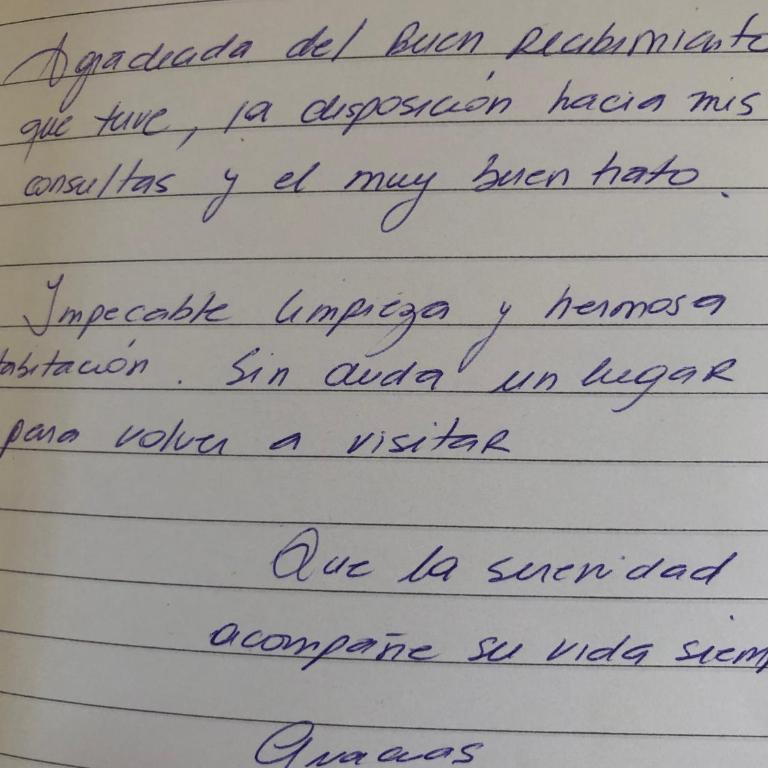 Agradecida del buen recibimiento
que tuve, la disposición hacia mis
consultas y el muy buen trato.
Impecable limpieza y hermosa
habitación. Sin duda un lugar
para volver a visitar
Que la serenidad
acompañe su vida siem
Gracias